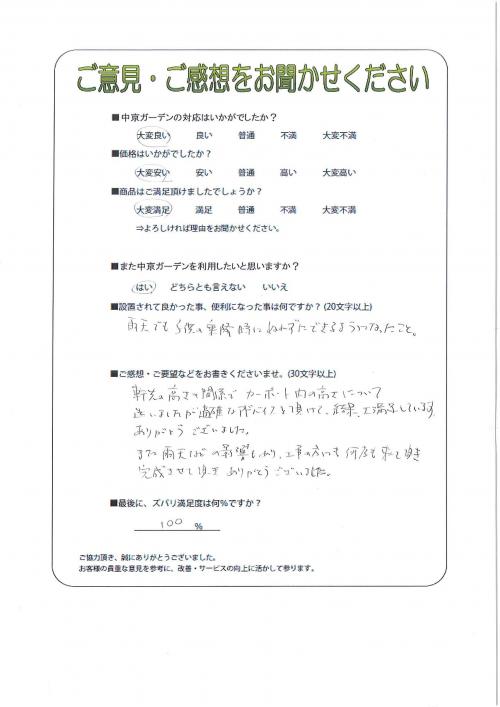 ご意見・ご感想をお聞かせください
■中京ガーデンの対応はいかがでしたか？
大変良い 良い 普通 不満 大変不満
■価格はいかがでしたか？
大変安い 安い 普通 高い 大変高い
■商品はご満足頂けましたでしょうか？
大変満足 満足 普通 不満 大変不満
⇒よろしければ理由をお聞かせください。
■また中京ガーデンを利用したいと思いますか？
はい どちらとも言えない いいえ
■設置されて良かった事、便利になった事は何ですか？(20文字以上)
雨天でも子供の乗降時にぬれずにできるようになったこと。
■ご感想・ご要望などをお書きくださいませ。(30文字以上)
軒先の高さの関係でカーポート内の高さについて
迷いましたが適確なアドバイスを頂けて、結果、大満足しています。
ありがとうございました。
また雨天などの影響もあり、工事の方にも何度も来て頂き
完成させて頂きありがとうございました。
■最後に、ズバリ満足度は何％ですか？
100 %
ご協力頂き、誠にありがとうございました。
お客様の貴重な意見を参考に、改善・サービスの向上に活かして参ります。